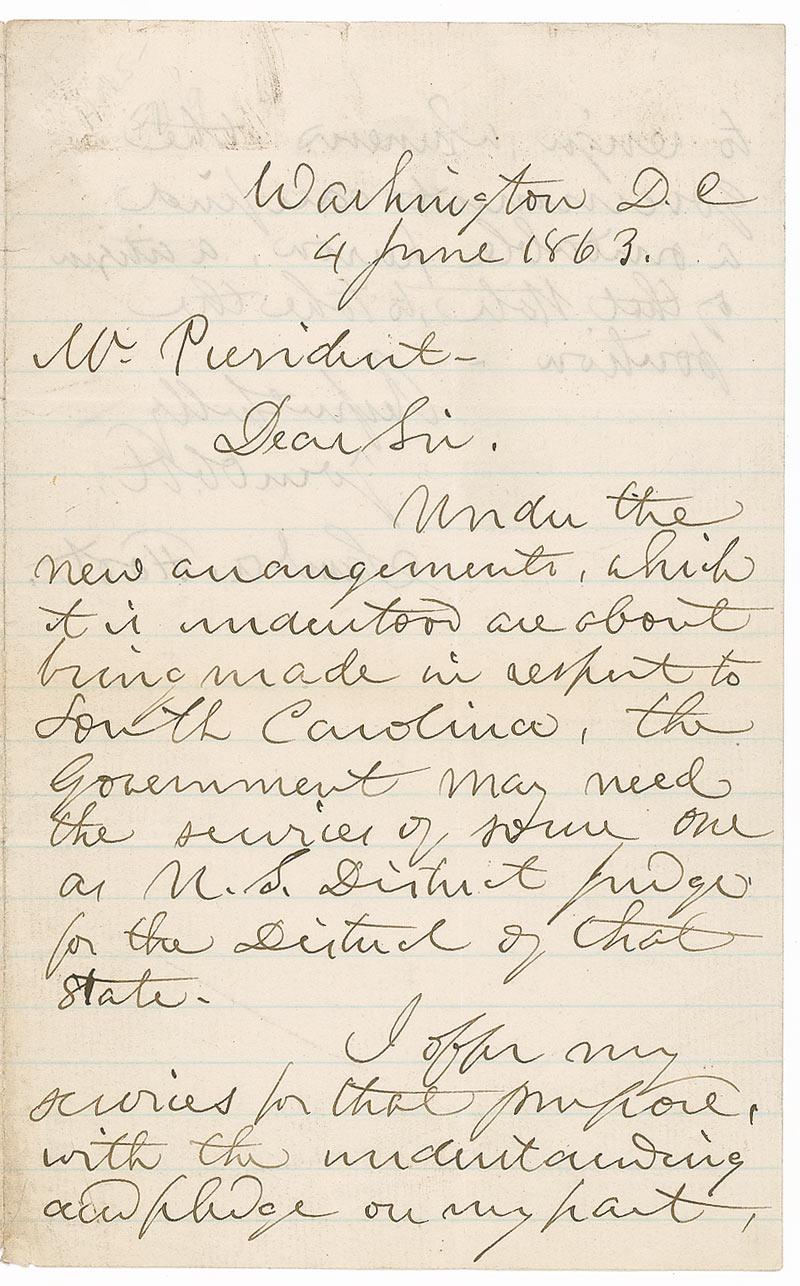 Washington D.C
4 June 1863.
Mr. President-
Dear Sir.
Under the
new arrangements, which
it is understood are about
being made in respect to
South Carolina, the
Government may need
the services of some one
as U.S. District judge
for the District of that
State-
I offer my
services for that purpose,
with the understanding
and pledge on my part,